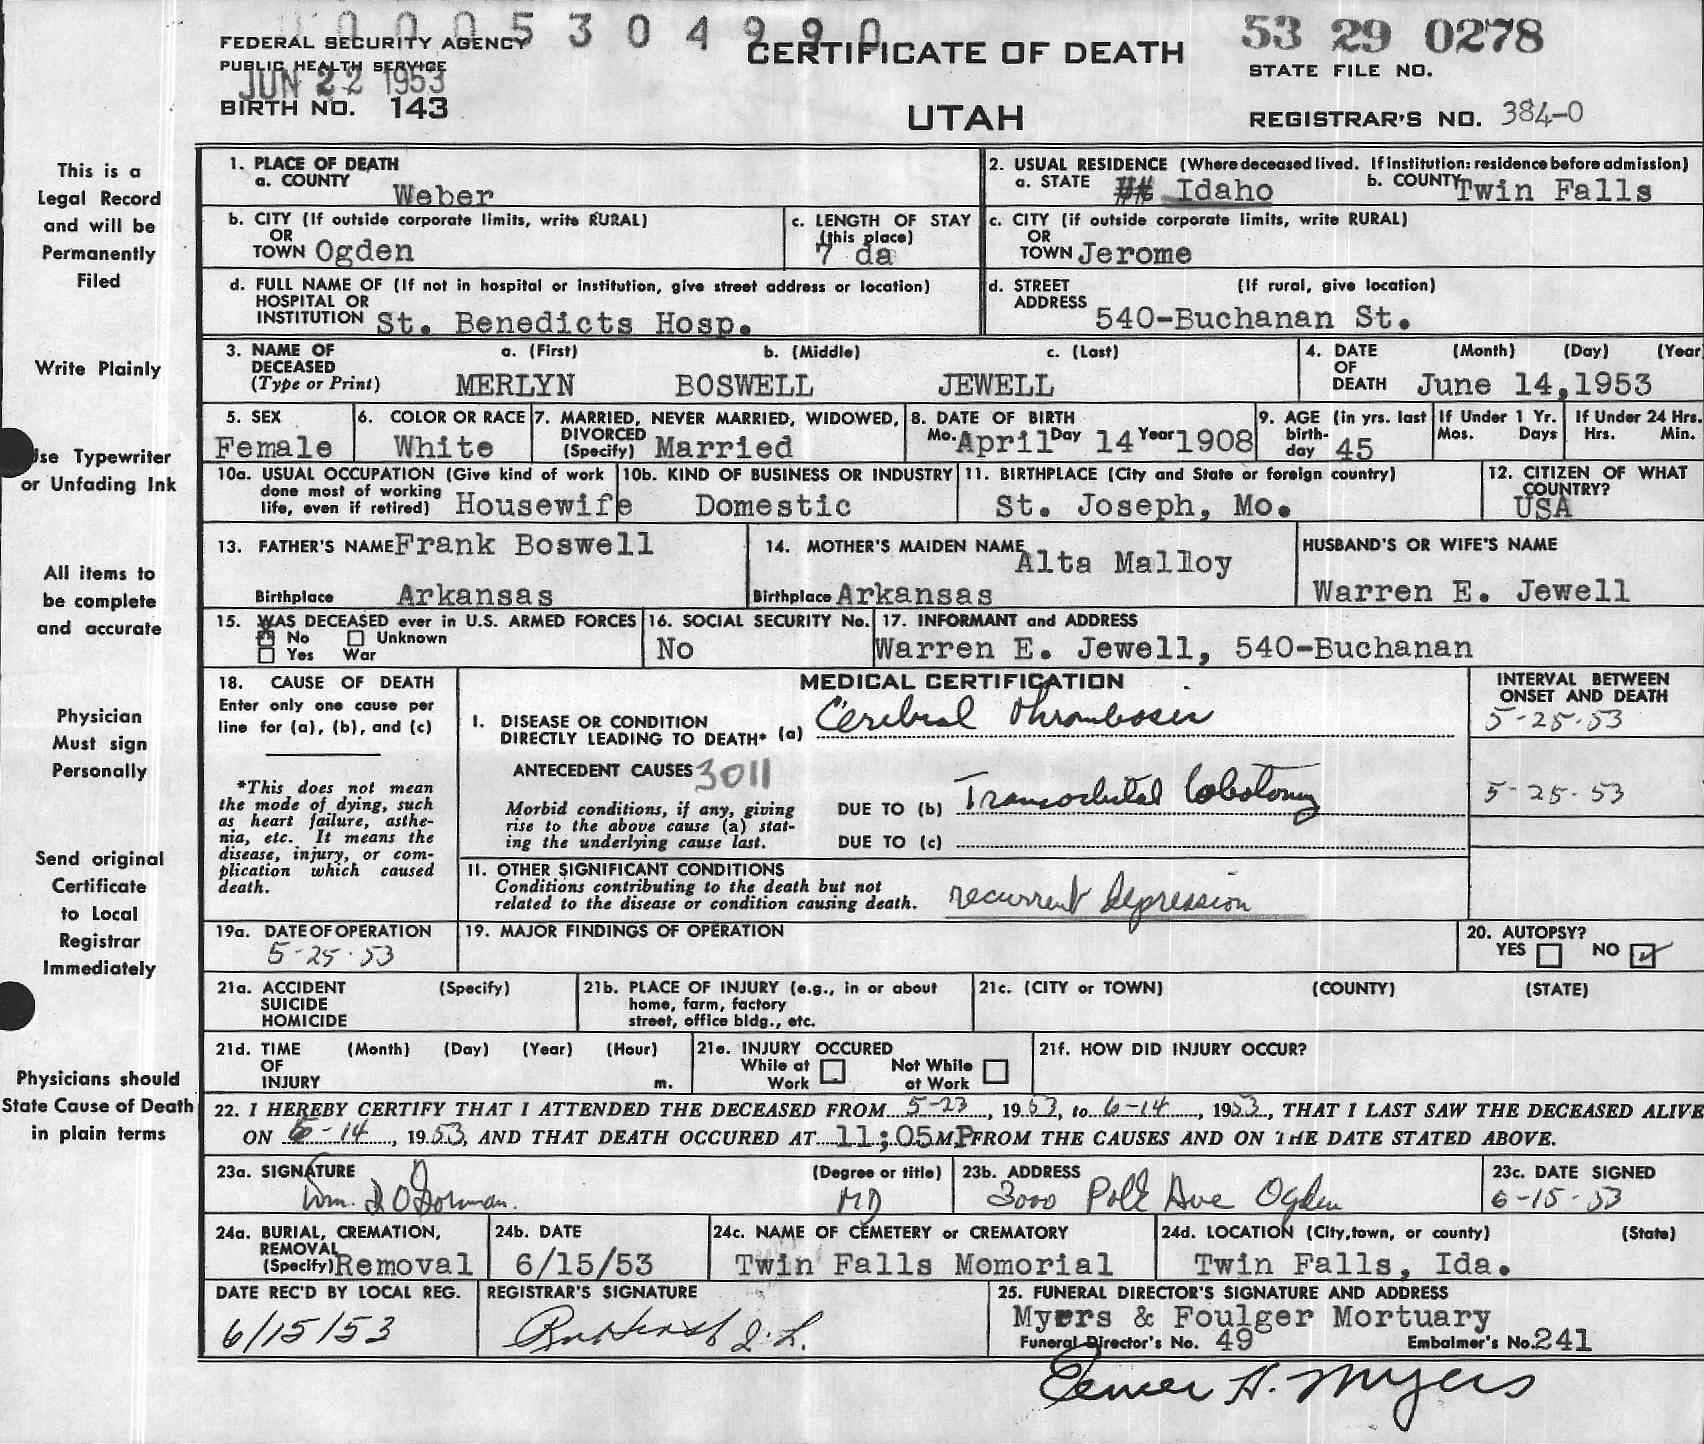 0005304990
53 29 0278
FEDERAL SECURITY AGENCY
PUBLIC HEALTH SERVICE
JUN 22 1953
BIRTH NO. 143
CERTIFICATE OF DEATH
UTAH
STATE FILE NO.
REGISTRAR'S NO. 384-0
This is a
Legal Record
and will be
Permanently
Filed
Write Plainly
Use Typewriter
or Unfading Ink
All items to
be complete
and accurate
Physician
Must sign
Personally
Send original
Certificate
to Local
Registrar
Immediately
Physicians should
State Cause of Death
in plain terms
1. PLACE OF DEATH
a. COUNTY Weber
2. USUAL RESIDENCE (Where deceased lived. If institution: residence before admission)
a. STATE Idaho b. COUNTY Twin Falls
b. CITY (If outside corporate limits, write RURAL)
OR
TOWN Ogden
c. LENGTH OF STAY
(this place)
7 da
c. CITY (if outside corporate limits, write RURAL)
OR
TOWN Jerome
d. FULL NAME OF (If not in hospital or institution, give street address or location)
HOSPITAL OR
INSTITUTION St. Benedicts Hosp.
d. STREET (If rural, give location)
ADDRESS 540-Buchanan St.
3. NAME OF a. (First) b. (Middle) c. (Last)
DECEASED
(Type or Print) MERLYN BOSWELL JEWELL
4. DATE (Month) (Day) (Year
OF
DEATH June 14,1953
5. SEX
Female
6. COLOR OR RACE
White
7. MARRIED, NEVER MARRIED, WIDOWED,
DIVORCED
(Specify) Married
8. DATE OF BIRTH
Mo. April Day 14 Year 1908
9. AGE (in yrs. last
birth-
day 45
If Under 1 Yr.
Mos. Days
If Under 24 Hrs.
Hrs. Min.
10a. USUAL OCCUPATION (Give kind of work
done most of working
life, even if retired) Housewife
10b. KIND OF BUSINESS OR INDUSTRY
Domestic
11. BIRTHPLACE (City and State or foreign country)
St. Joseph, Mo.
12. CITIZEN OF WHAT
COUNTRY?
USA
13. FATHER'S NAME Frank Boswell
Birthplace Arkansas
14. MOTHER'S MAIDEN NAME
Alta Malloy
Birthplace Arkansas
HUSBAND'S OR WIFE'S NAME
Warren E. Jewell
15. WAS DECEASED ever in U.S. ARMED FORCES
No Unknown
Yes War
16. SOCIAL SECURITY No.
No
17. INFORMANT and ADDRESS
Warren E. Jewell, 540-Buchanan
18. CAUSE OF DEATH
Enter only one cause per
line for (a), (b), and (c)
*This does not mean
the mode of dying, such
as heart failure, asthe-
nia, etc. It means the
disease, injury, or com-
plication which caused
death.
MEDICAL CERTIFICATION
I. DISEASE OR CONDITION
DIRECTLY LEADING TO DEATH* (a) Cerebral thrombosis
ANTECEDENT CAUSES 3011
Morbid conditions, if any, giving
rise to the above cause (a) stat-
ing the underlying cause last.
DUE TO (b) Transorbital lobotomy
DUE TO (c)
II. OTHER SIGNIFICANT CONDITIONS
Conditions contributing to the death but not
related to the disease or condition causing death. recurrent depression
INTERVAL BETWEEN
ONSET AND DEATH
5-25-53
5-25-53
19a. DATE OF OPERATION
5-25-53
19. MAJOR FINDINGS OF OPERATION
20. AUTOPSY?
YES NO
21a. ACCIDENT (Specify)
SUICIDE
HOMICIDE
21b. PLACE OF INJURY (e.g., in or about
home, farm, factory
street, office bldg., etc.
21c. (CITY or TOWN) (COUNTY) (STATE)
21d. TIME (Month) (Day) (Year) (Hour)
OF
INJURY m.
21e. INJURY OCCURED
While at Work
Not While at Work
21f. HOW DID INJURY OCCUR?
22. I HEREBY CERTIFY THAT I ATTENDED THE DECEASED FROM 5-23, 1953, to 6-14, 1953, THAT I LAST SAW THE DECEASED ALIVE
ON 6-14, 1953, AND THAT DEATH OCCURED AT 11;05 M P FROM THE CAUSES AND ON THE DATE STATED ABOVE.
23a. SIGNATURE (Degree or title)
Wm. D O'Gorman. MD
23b. ADDRESS
3000 Polk Ave Ogden
23c. DATE SIGNED
6-15-53
24a. BURIAL, CREMATION,
REMOVAL
(Specify) Removal
24b. DATE
6/15/53
24c. NAME OF CEMETERY or CREMATORY
Twin Falls Momorial
24d. LOCATION (City, town, or county) (State)
Twin Falls, Ida.
DATE REC'D BY LOCAL REG.
6/15/53
REGISTRAR'S SIGNATURE
25. FUNERAL DIRECTOR'S SIGNATURE AND ADDRESS
Myers & Foulger Mortuary
Funeral Director's No. 49 Embalmer's No. 241
Elmer H. Myers